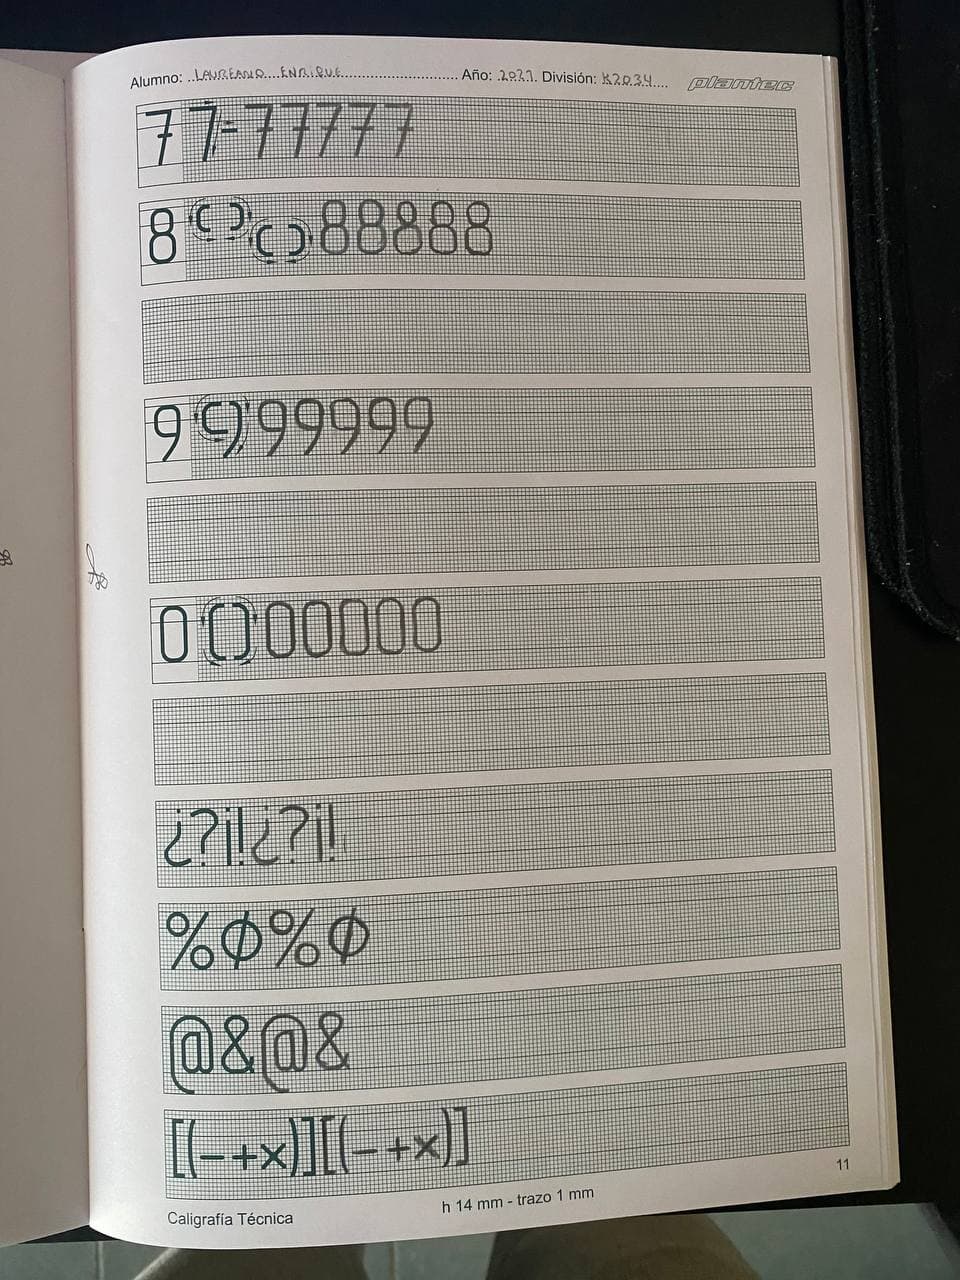 Alumno: ..LAUREANO...ENRIQUE............................. Año: .2021. División: .K2034.... plantec
7 7- 77777
8 88888
9 99999
0 00000
¿?¡!¿?¡!
%Φ%Φ
@&@&
[(-+x)][(-+x)]
11
Caligrafía Técnica h 14 mm - trazo 1 mm